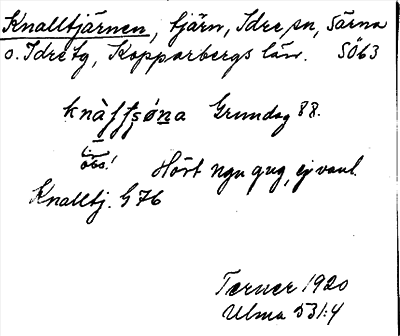 Knalltjärnen, tjärn, Idre sn, Särna
o. Idre tg, Kopparbergs län. SÖ63
Grundag 88.
obs!
Hört ngn gng, ej vanl.
Knalltj. G 76
Terner 1920
Ulma 531:4